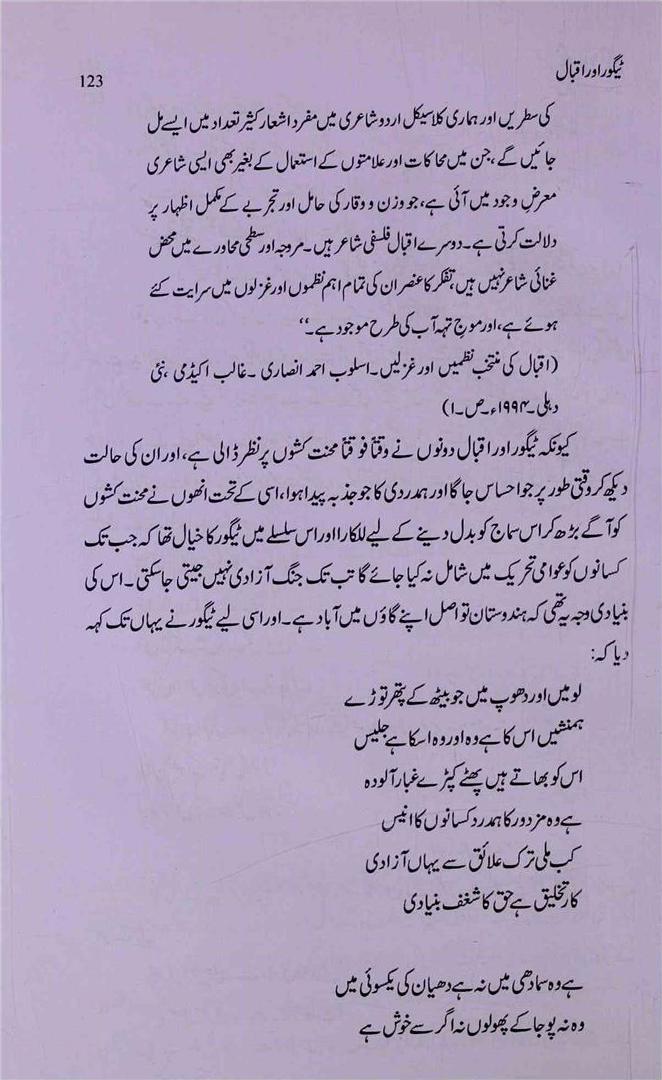 ٹیگور اور اقبال
123
کی سطریں اور ہماری کلاسیکل اردو شاعری میں مفرد اشعار کثیر تعداد میں ایسے مل
جائیں گے، جن میں محاکات اور علامتوں کے استعمال کے بغیر بھی ایسی شاعری
معرضِ وجود میں آئی ہے، جو وزن و وقار کی حامل اور تجربے کے مکمل اظہار پر
دلالت کرتی ہے۔ دوسرے اقبال فلسفی شاعر ہیں۔ مروجہ اور سطحی محاورے میں محض
غنائی شاعر نہیں ہیں، تفکر کا عنصر ان کی تمام اہم نظموں اور غزلوں میں سرایت کئے
ہوئے ہے، اور موجِ تہہ آب کی طرح موجود ہے۔‘‘
(اقبال کی منتخب نظمیں اور غزلیں۔ اسلوب احمد انصاری۔ غالب اکیڈمی، نئی
دہلی۔ ۱۹۹۴ء۔ ص۔ ۱)
کیونکہ ٹیگور اور اقبال دونوں نے وقتاً فوقتاً محنت کشوں پر نظر ڈالی ہے، اور ان کی حالت
دیکھ کر وقتی طور پر جو احساس جاگا اور ہمدردی کا جو جذبہ پیدا ہوا، اسی کے تحت انھوں نے محنت کشوں
کو آگے بڑھ کر اس سماج کو بدل دینے کے لیے للکارا اور اس سلسلے میں ٹیگور کا خیال تھا کہ جب تک
کسانوں کو عوامی تحریک میں شامل نہ کیا جائے گا تب تک جنگ آزادی نہیں جیتی جاسکتی۔ اس کی
بنیادی وجہ یہ تھی کہ ہندوستان تو اصل اپنے گاؤں میں آباد ہے۔ اور اسی لیے ٹیگور نے یہاں تک کہہ
دیا کہ:
لو میں اور دھوپ میں جو بیٹھ کے پتھر توڑے
ہمنشیں اس کا ہے وہ اور وہ اسکا ہے جلیس
اس کو بھاتے ہیں پھٹے کپڑے غبار آلودہ
ہے وہ مزدور کا ہمدرد کسانوں کا انیس
کب ملی ترک علائق سے یہاں آزادی
کار تخلیق ہے حق کا شغف بنیادی
ہے وہ سمادھی میں نہ ہے دھیان کی یکسوئی میں
وہ نہ پوجا کے پھولوں نہ اگر سے خوش ہے